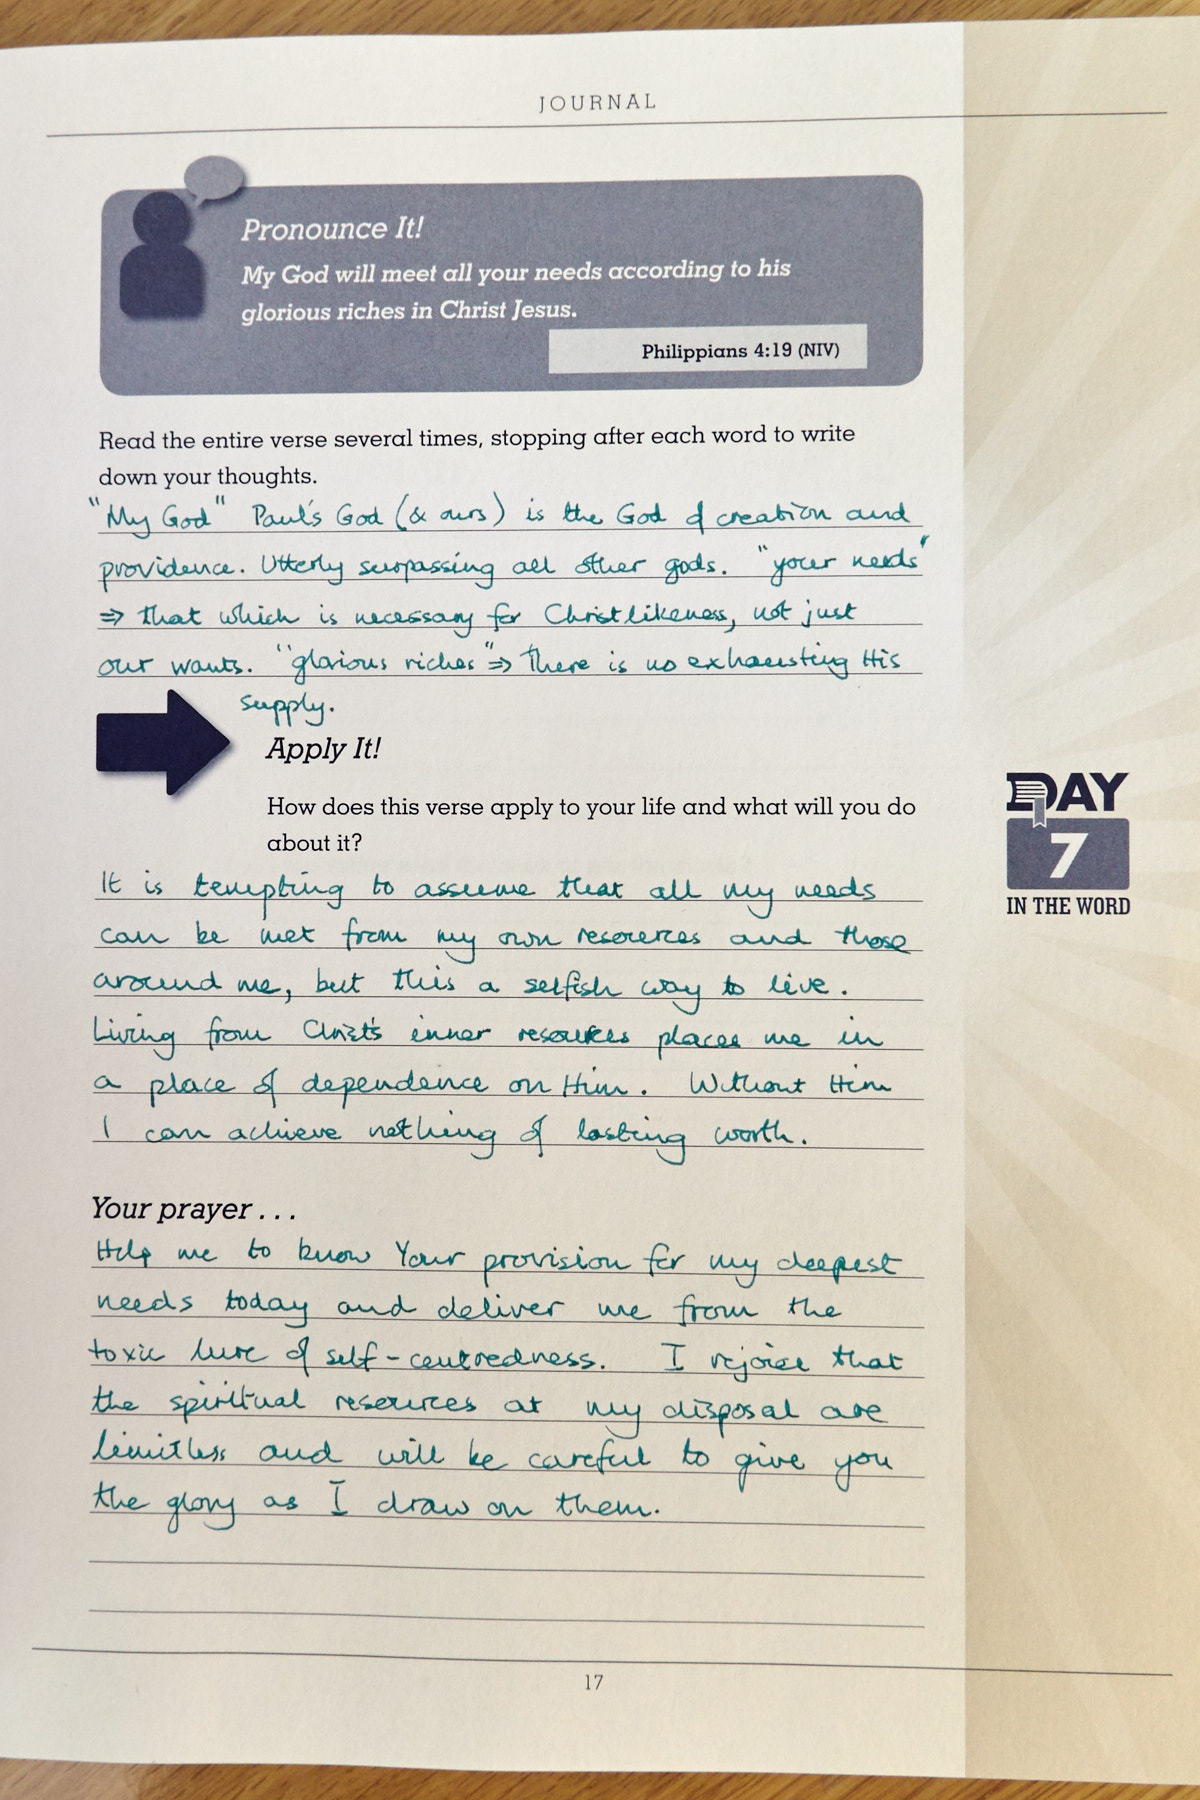 JOURNAL
Pronounce It!
My God will meet all your needs according to his
glorious riches in Christ Jesus.
Philippians 4:19 (NIV)
Read the entire verse several times, stopping after each word to write
down your thoughts.
"My God" Paul's God (& ours) is the God of creation and
providence. Utterly surpassing all other gods. "your needs"
⇒ that which is necessary for Christlikeness, not just
our wants. "glorious riches" ⇒ there is no exhausting His
supply.
Apply It!
How does this verse apply to your life and what will you do
about it?
It is tempting to assume that all my needs
can be met from my own resources and those
around me, but this a selfish way to live.
Living from Christ's inner resources places me in
a place of dependence on Him. Without Him
I can achieve nothing of lasting worth.
Your prayer . . .
Help me to know Your provision for my deepest
needs today and deliver me from the
toxic lure of self-centredness. I rejoice that
the spiritual resources at my disposal are
limitless and will be careful to give you
the glory as I draw on them.
DAY
7
IN THE WORD
17